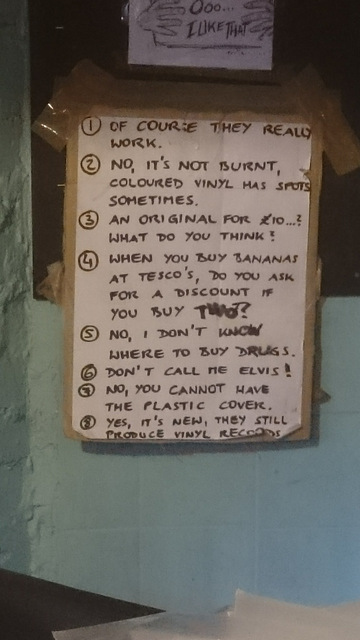 Ooo...
I LIKE THAT
① OF COURSE THEY REALLY
WORK.
② NO, IT'S NOT BURNT,
COLOURED VINYL HAS SPOTS
SOMETIMES.
③ AN ORIGINAL FOR £10...?
WHAT DO YOU THINK?
④ WHEN YOU BUY BANANAS
AT TESCO'S, DO YOU ASK
FOR A DISCOUNT IF
YOU BUY TWO?
⑤ NO, I DON'T KNOW
WHERE TO BUY DRUGS.
⑥ DON'T CALL ME ELVIS!
⑦ NO, YOU CANNOT HAVE
THE PLASTIC COVER.
⑧ YES, IT'S NEW, THEY STILL
PRODUCE VINYL RECORDS